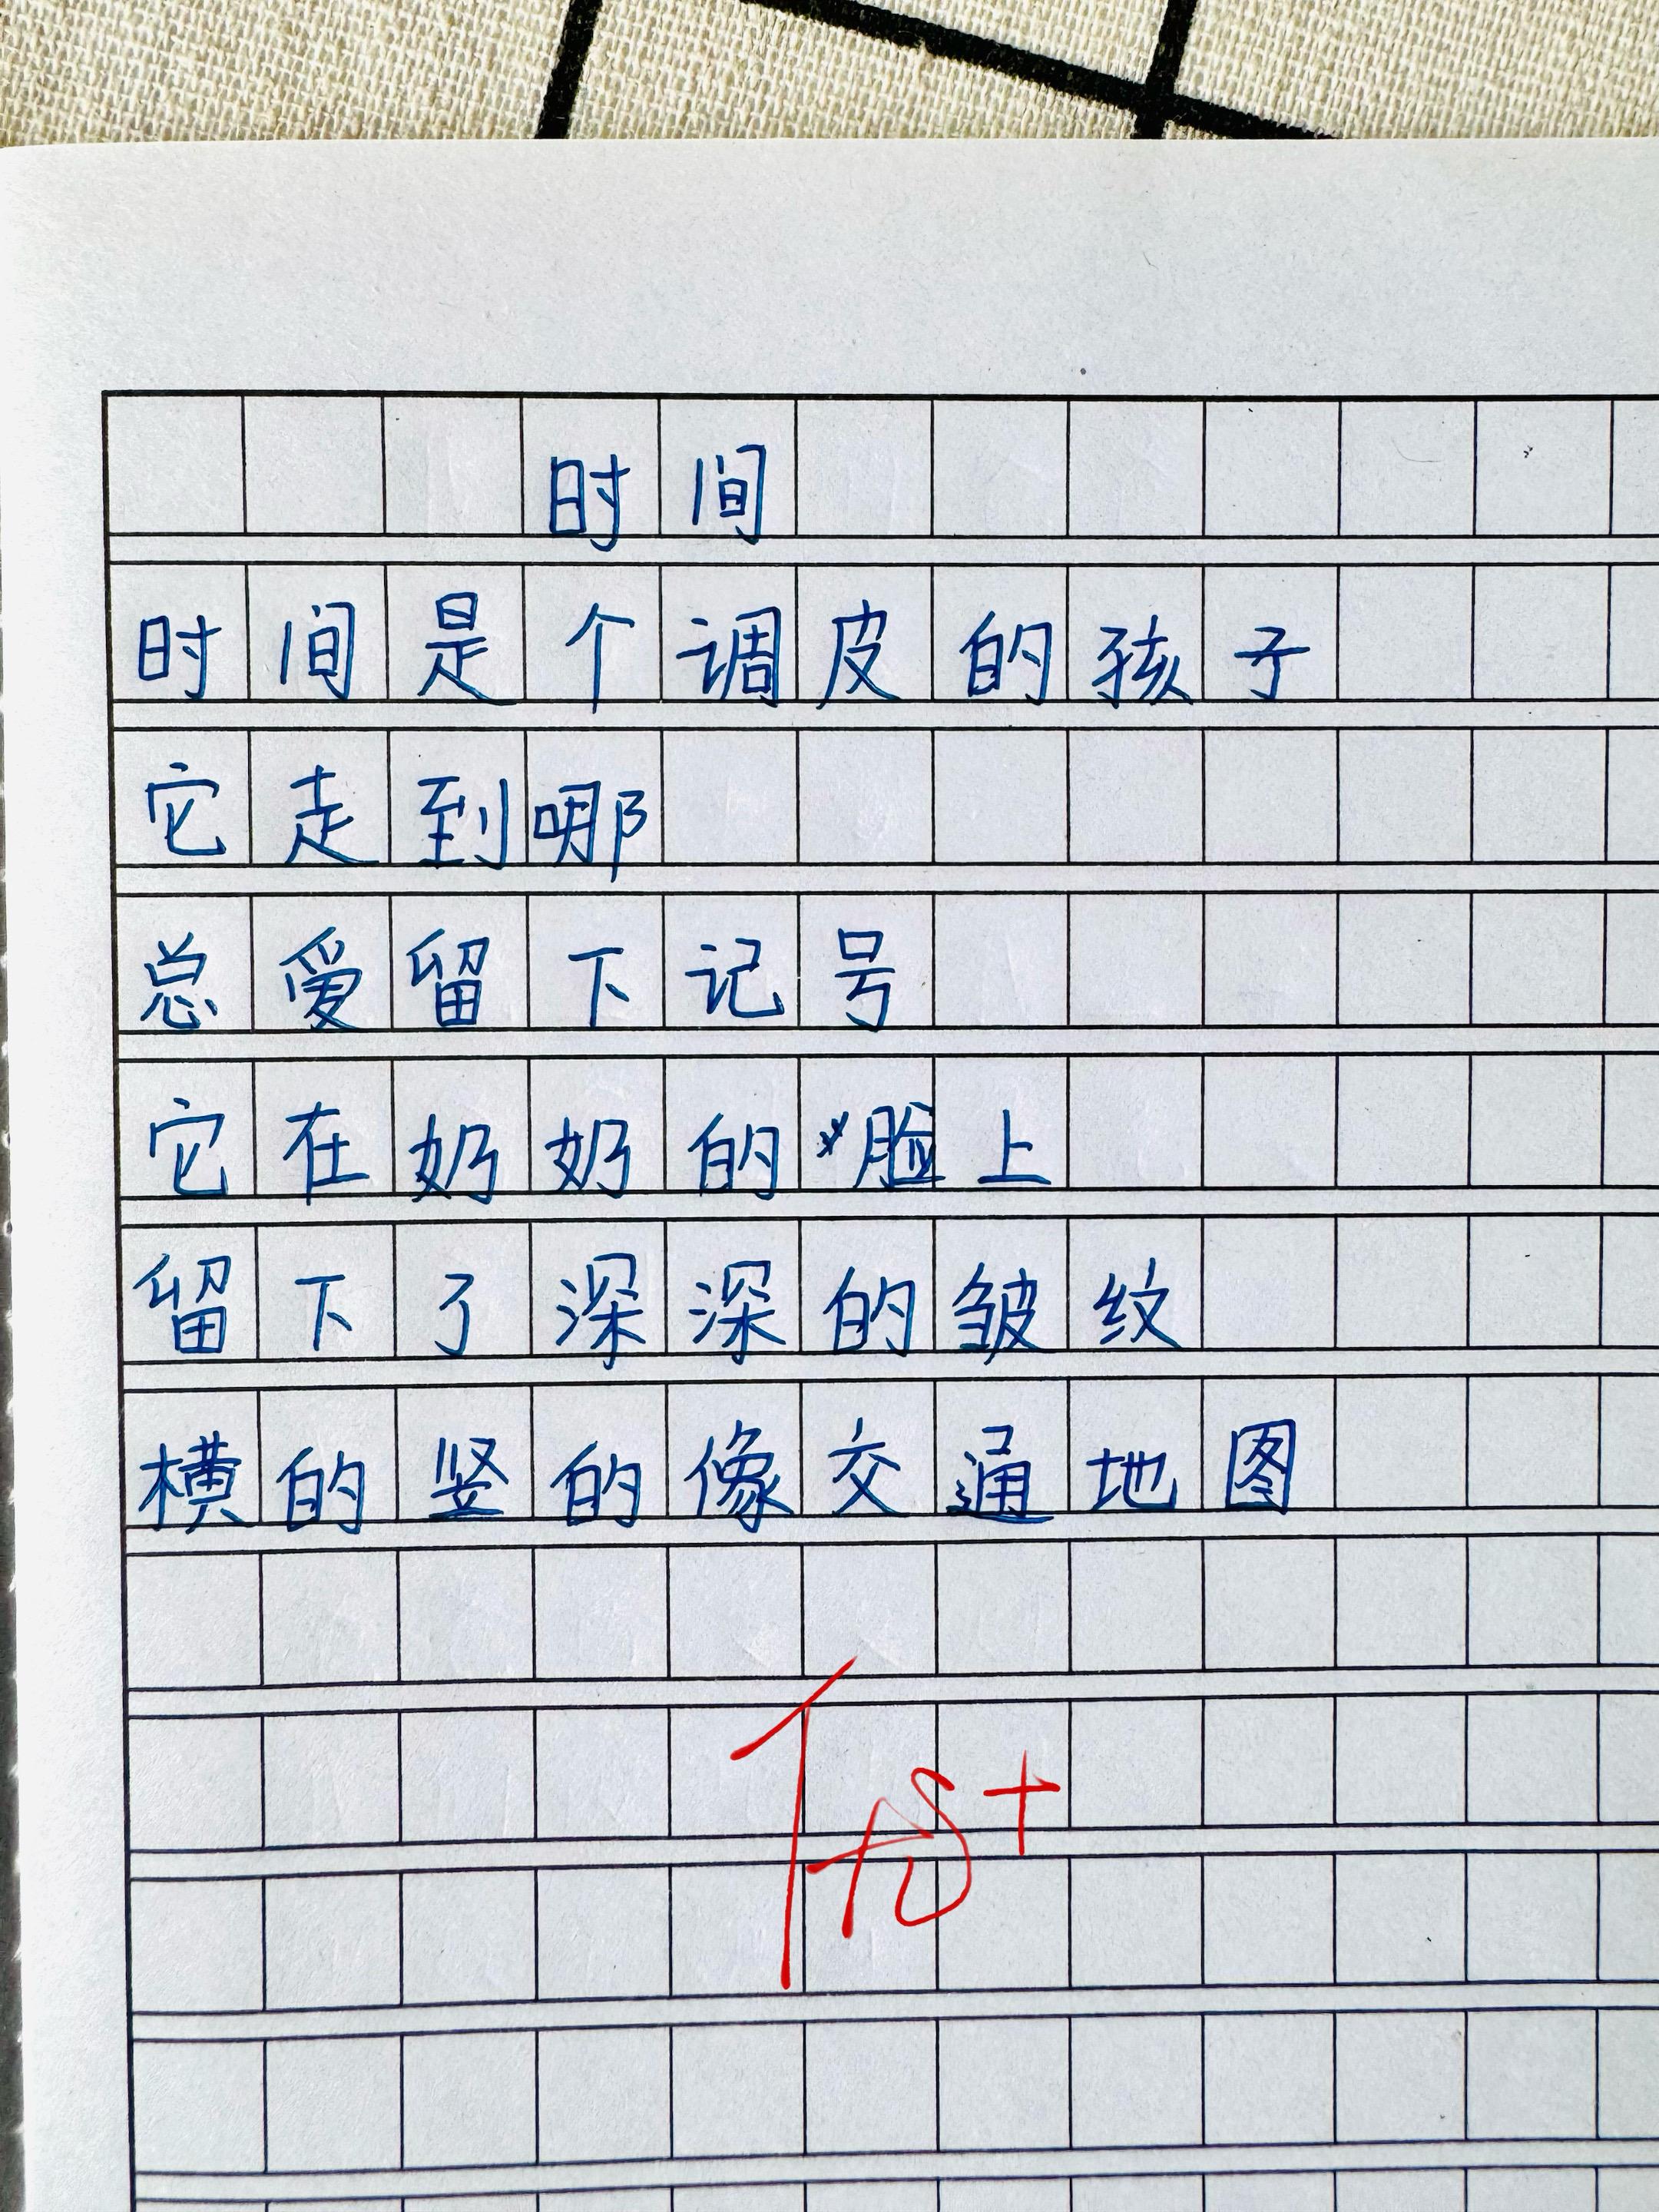 时间
时间是个调皮的孩子
它走到哪
总爱留下记号
它在奶奶的脸上
留下了深深的皱纹
横的竖的像交通地图